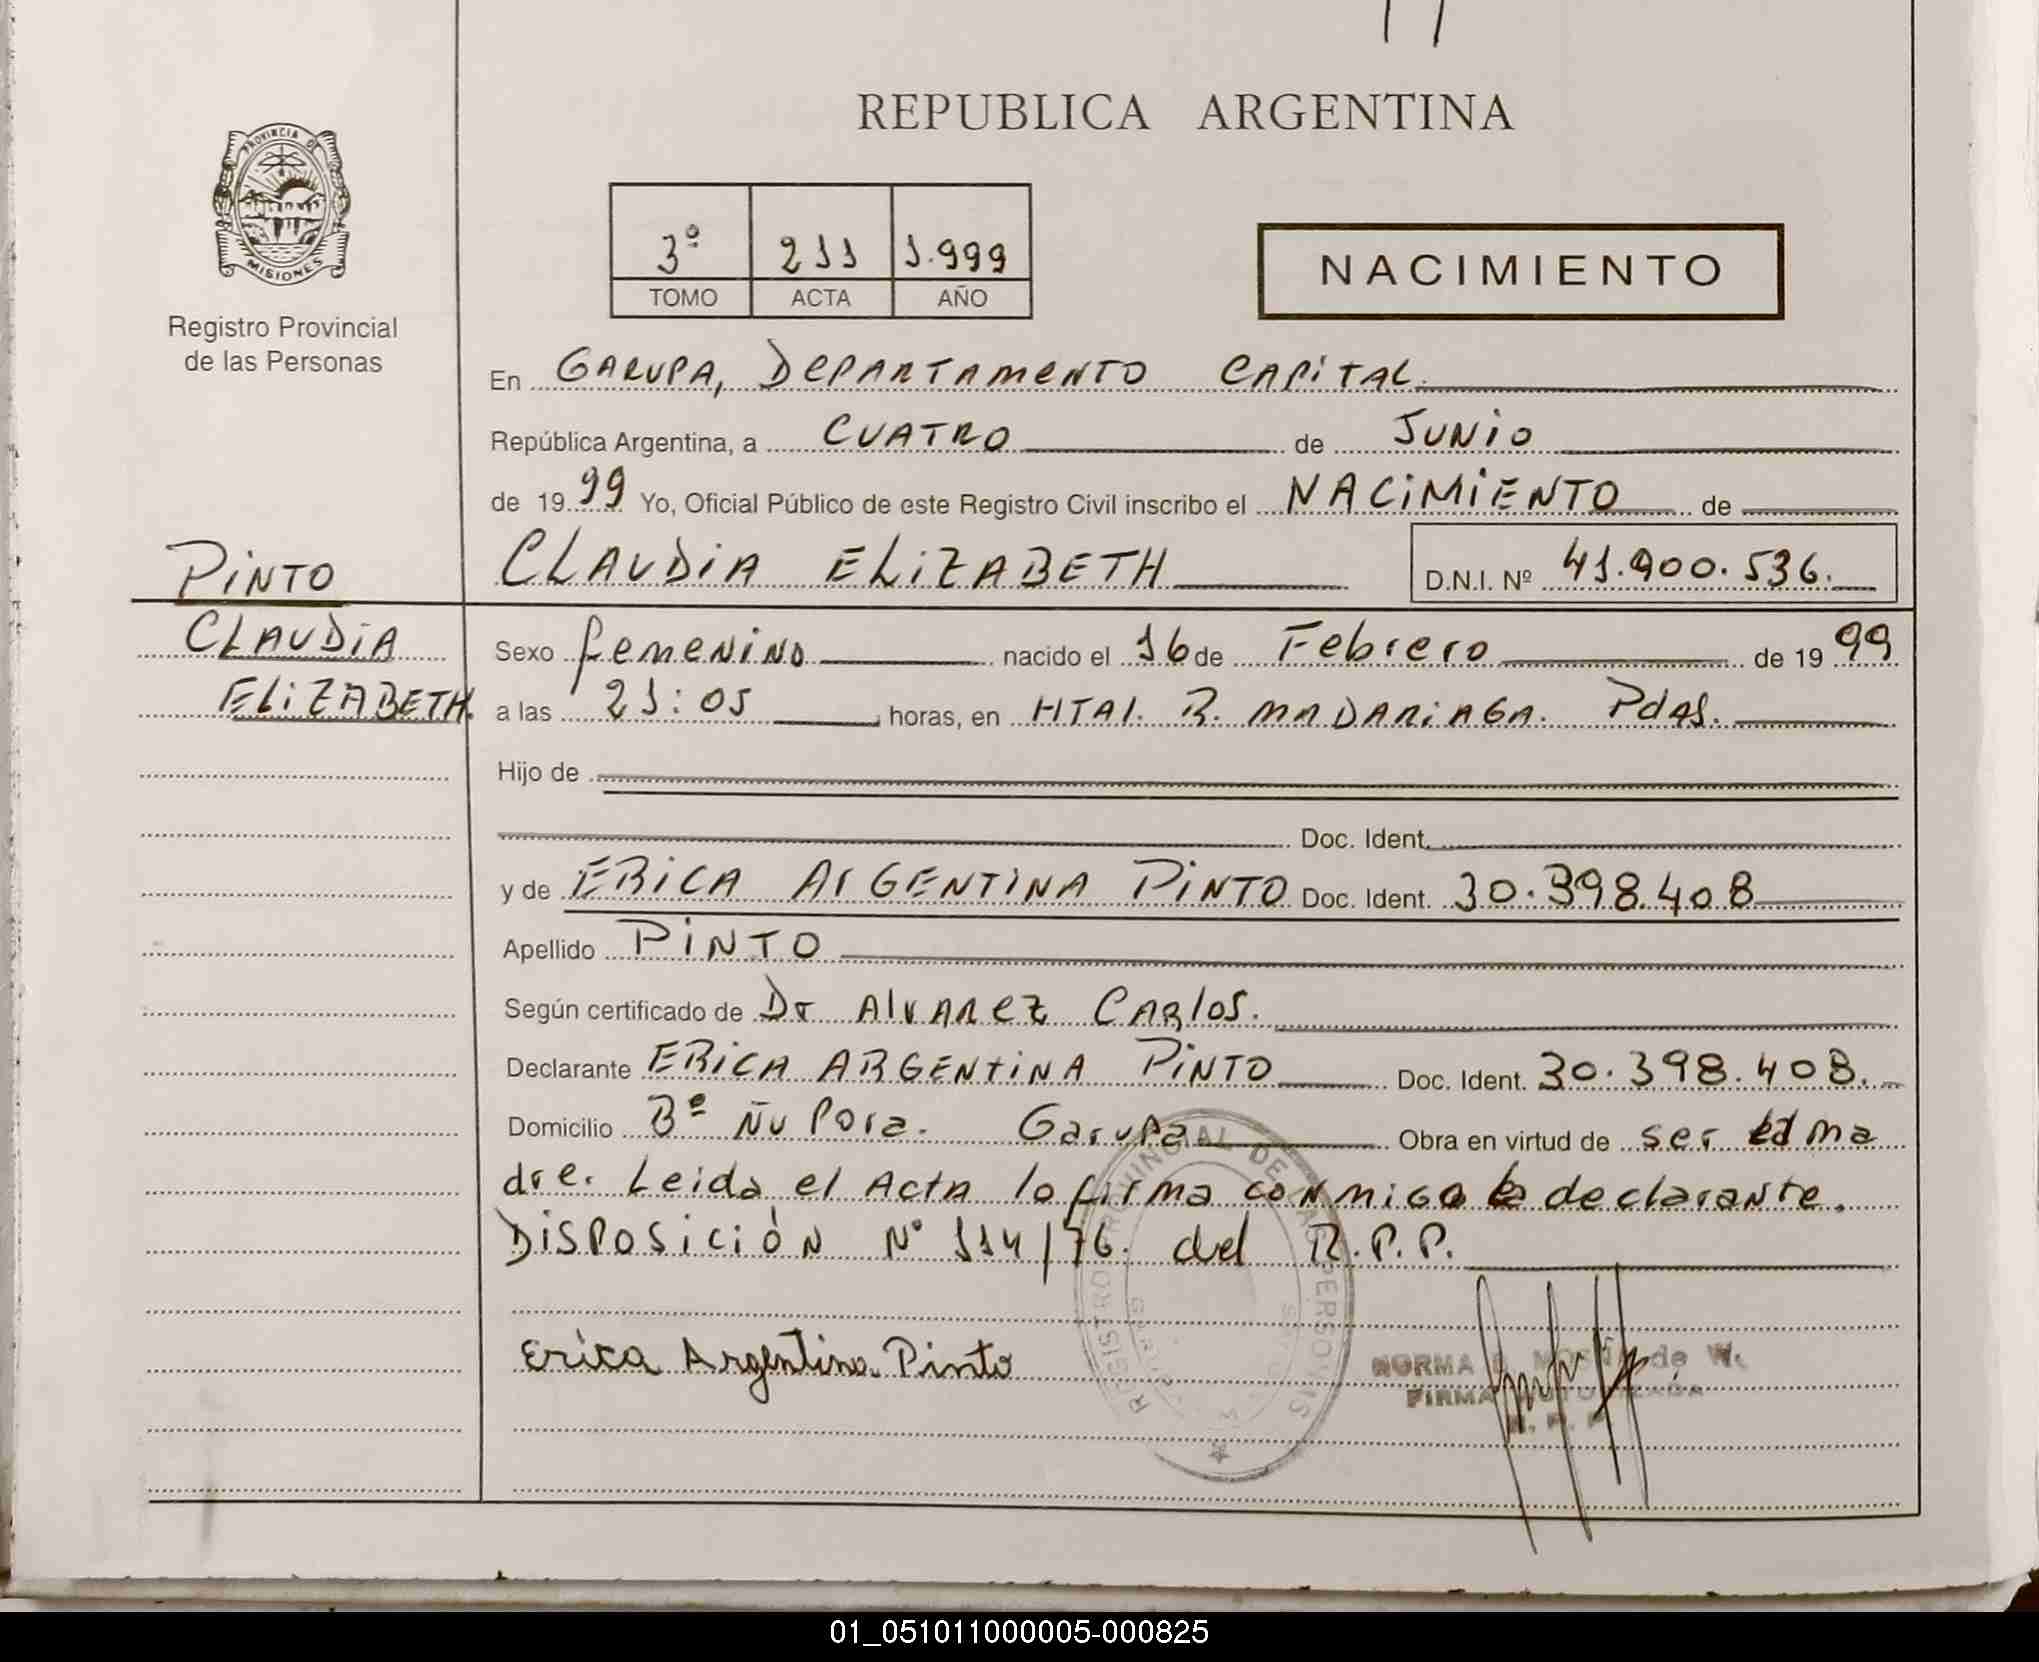 REPUBLICA ARGENTINA
PROVINCIA DE
MISIONES
Registro Provincial
de las Personas
3º 211 1.999
TOMO ACTA AÑO
NACIMIENTO
En GARUPA, DEPARTAMENTO CAPITAL
República Argentina, a CUATRO de JUNIO
de 1999 Yo, Oficial Público de este Registro Civil inscribo el NACIMIENTO de
PINTO
CLAUDIA ELIZABETH D.N.I. Nº 41.900.536.
CLAUDIA
ELIZABETH.
Sexo femenino nacido el 16 de Febrero de 1999
a las 21:05 horas, en HTAl. R. MADARIAGA. Pdas.
Hijo de
Doc. Ident.
y de ERICA ArGENTINA PINTO Doc. Ident. 30.398.408
Apellido PINTO
Según certificado de Dr AlVAREZ CARlos.
Declarante ERICA ARGENTINA PINTO Doc. Ident. 30.398.408.
Domicilio Bº Ñu Pora. Garupa Obra en virtud de ser ma
dre. Leida el Acta lo firma conmigo la declarante.
DISPOSICIÓN Nº 114/76. del R.P.P.
REGISTRO PROVINCIAL DE LAS PERSONAS
Erica Argentina Pinto
NORMA de W.
FIRMA
01_051011000005-000825